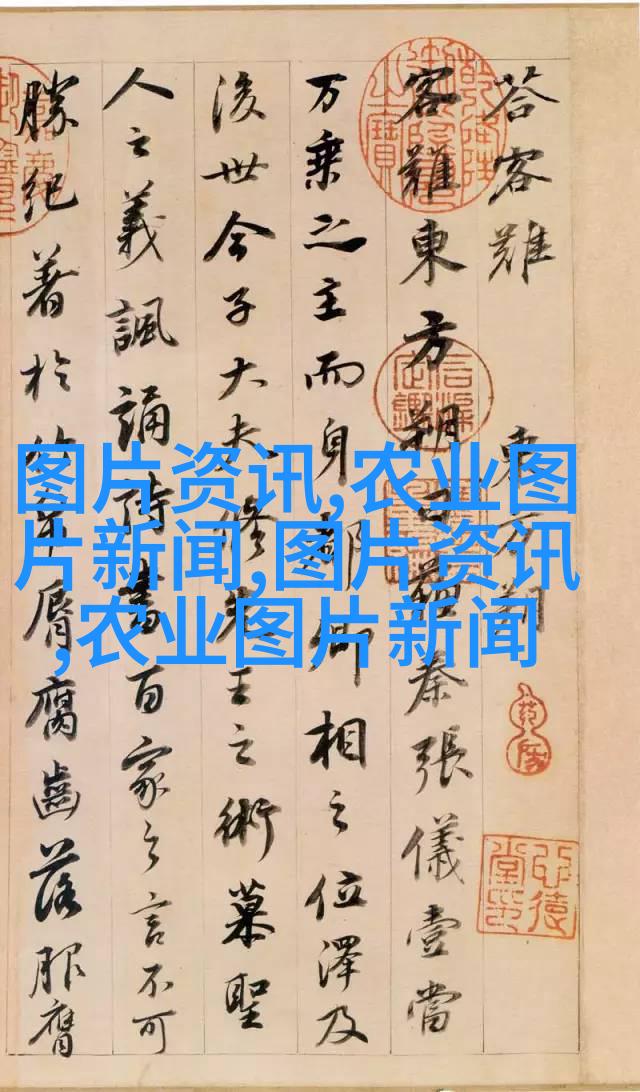 荅客難 東方朔
客難東方朔曰蘇秦張儀壹當
万乘之主而身都卿相之位澤及
後世今子大夫修先王之術慕聖
人之義諷誦詩書百家之言不可
勝紀著於竹帛脣腐齒落服膺
图片资讯,农业图
片新闻,图片资讯
,农业图片新闻